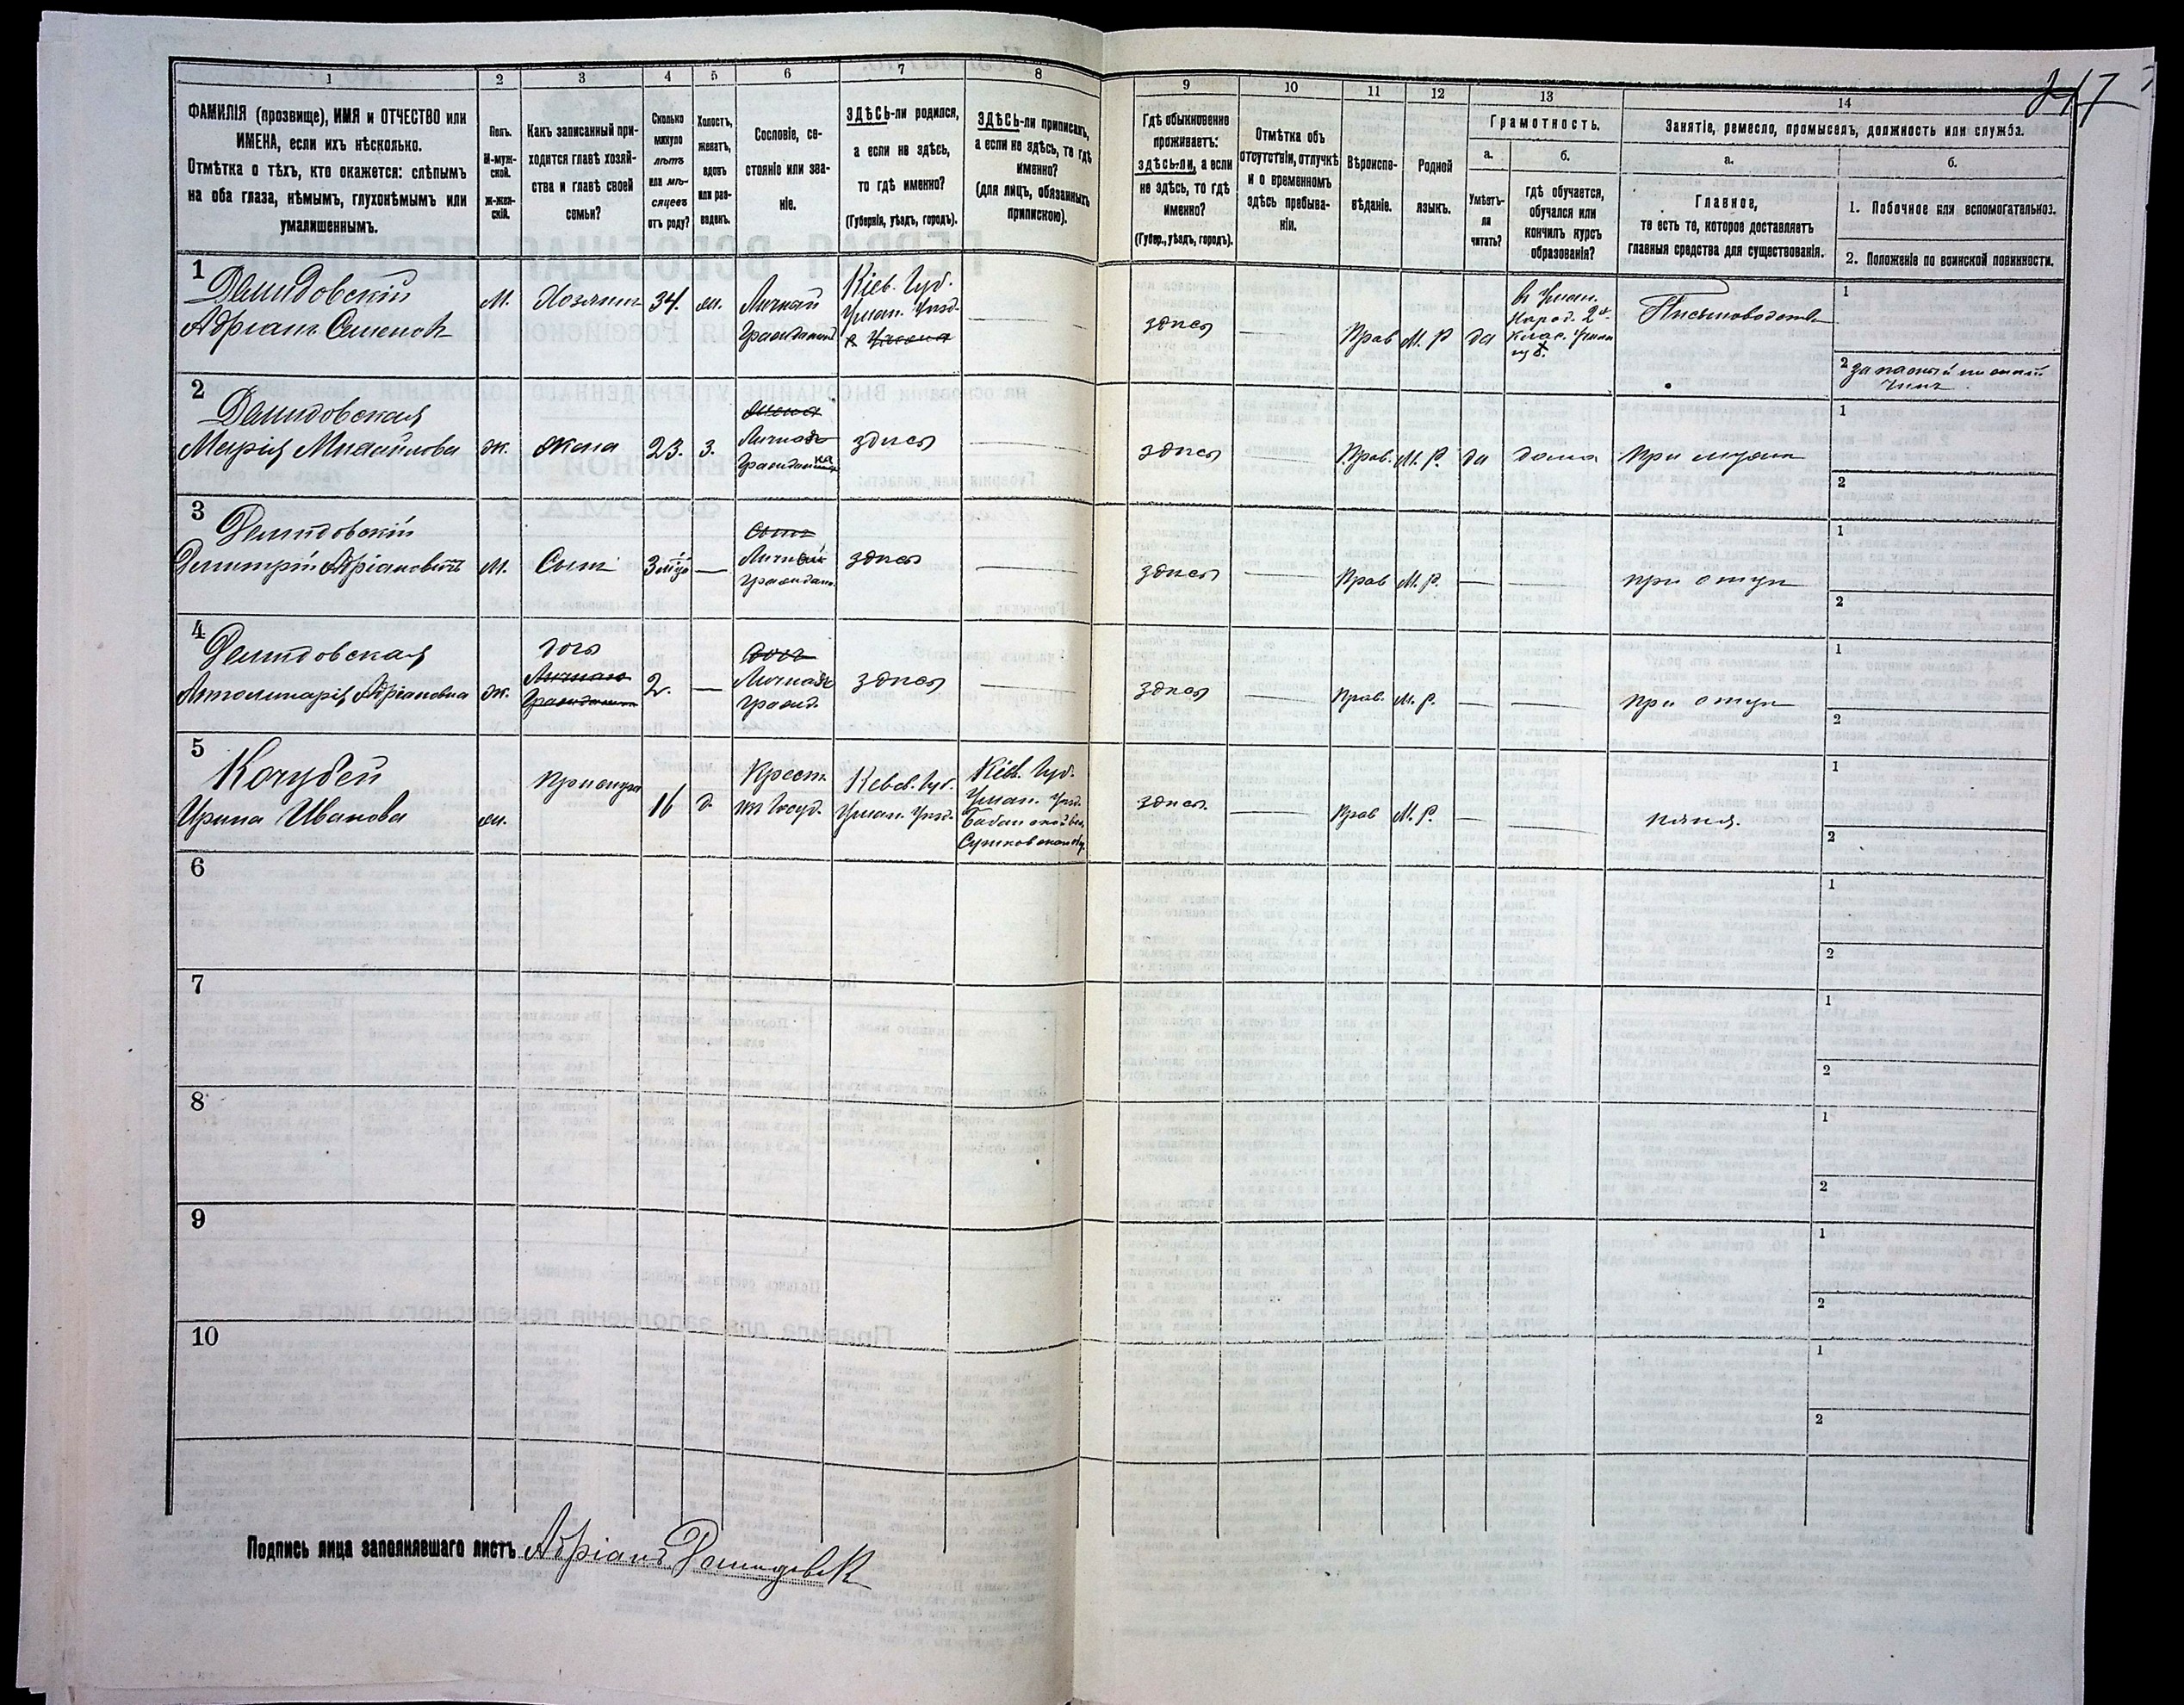 247
1 2 3 4 5 6 7 8 9 10 11 12 13 14
ФАМИЛІЯ (прозвище), ИМЯ и ОТЧЕСТВО или
ИМЕНА, если ихъ нѣсколько.
Отмѣтка о тѣхъ, кто окажется: слѣпымъ
на оба глаза, нѣмымъ, глухонѣмымъ или
умалишеннымъ.
Полъ.
М-муж-
ской.
Ж-жен-
скій.
Какъ записанный при-
ходится главѣ хозяй-
ства и главѣ своей
семьи?
Сколько
минуло
лѣтъ
или мѣ-
сяцевъ
отъ роду?
Холостъ,
женатъ,
вдовъ
или раз-
веденъ.
Сословіе, со-
стояніе или зва-
ніе.
ЗДѢСЬ-ли родился,
а если не здѣсь,
то гдѣ именно?
(Губернія, уѣздъ, городъ).
ЗДѢСЬ-ли приписанъ,
а если не здѣсь, то гдѣ
именно?
(для лицъ, обязанныхъ
припискою).
Гдѣ обыкновенно
проживаетъ:
здѣсь-ли, а если
не здѣсь, то гдѣ
именно?
(Губер., уѣздъ, городъ).
Отмѣтка объ
отсутствіи, отлучкѣ
и о временномъ
здѣсь пребыва-
ніи.
Вѣроиспо-
вѣданіе.
Родной
языкъ.
Грамотность.
а.
Умѣетъ-
ли
читать?
б.
гдѣ обучается,
обучался или
кончилъ курсъ
образованія?
Занятіе, ремесло, промыселъ, должность или служба.
а.
Главное,
то есть то, которое доставляетъ
главныя средства для существованія.
б.
1. Побочное или вспомогательное.
2. Положеніе по воинской повинности.
1
Демидовскій
Адріанъ Семеновъ
М.
Хозяинъ
34.
ж.
Личный
Гражданинъ
Кіев. Губ.
Уман. Уѣзд.
здѣсь
Прав
М. Р
да
въ Уман.
Народ. 2х
Клас. Учили
щѣ.
Письмоводитель
1
2 запасный
чинъ
2
Демидовская
Марія Михайлова
ж.
жена
23.
з.
Личная
Гражданка
здѣсь
здѣсь
Прав.
М. Р.
да
дома
при мужѣ
1
2
3
Демидовскій
Димитрій Адріановичъ
М.
Сынъ
3
Личный
Граждан.
здѣсь
здѣсь
Прав
М. Р.
при отцѣ
1
2
4
Демидовская
Аполинарія Адріановна
ж.
дочь
Личная
Гражданин
2.
дочь
Личная
Гражд.
здѣсь
здѣсь
Прав.
М. Р.
при отцѣ
1
2
5
Кочубей
Ирина Иванова
ж.
Прислуга
16
д.
Крест.
изъ Госуд.
Кіев. Губ.
Уман. Уѣзд.
Кіев. Губ.
Уман. Уѣзд.
Бабанской вол.
Сушковской
здѣсь.
Прав
М. Р.
няня.
1
2
6
1
2
7
1
2
8
1
2
9
1
2
10
1
2
Подпись лица заполнявшаго листъ Адріанъ Демидовск